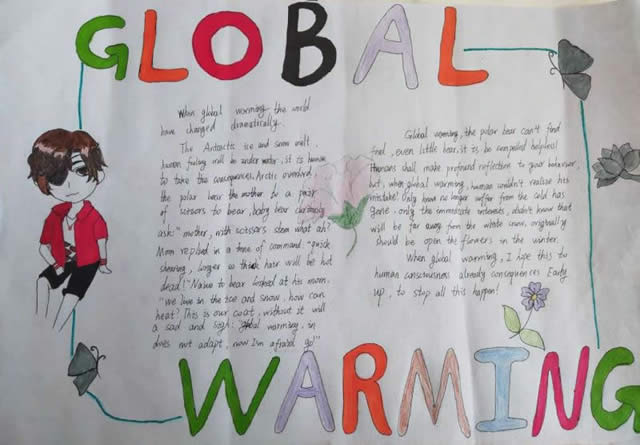 GLOBAL
When global worming the world
have changed dramatically.
The Antarctic ice and snow melt,
human feeling will be under water, it is human
to take the consequences. Arctic
the polar bear the mother to a pair
of scissors to bear, baby bear curiously
ask: "mother, with scissors stem what ah?
Mom replied in a tone of command: "quick
shearing, longer so thick hair will be hot
dead!" Naive to bear looked at his mom,
"we live in the ice and snow, how can
heat? This is our coat, without it will
a sad and sigh: "global warming, in
does not adapt, now I'm afraid go!"
Global worming, the polar bear can't find
feel, even little bear, it is be compelled helpless!
Humans shall make profound reflections to your behaviour,
but when global warming, human wouldn't realise his
mistake! Only know no longer suffer from the cold has
gone, only the immediate interests, don't know that
will be far away from the white snow, originally
should be open the flowers in the winter.
When global warming, I hope this to
human consciousness already consequences. Early
up, to stop all this happen!
WARMING